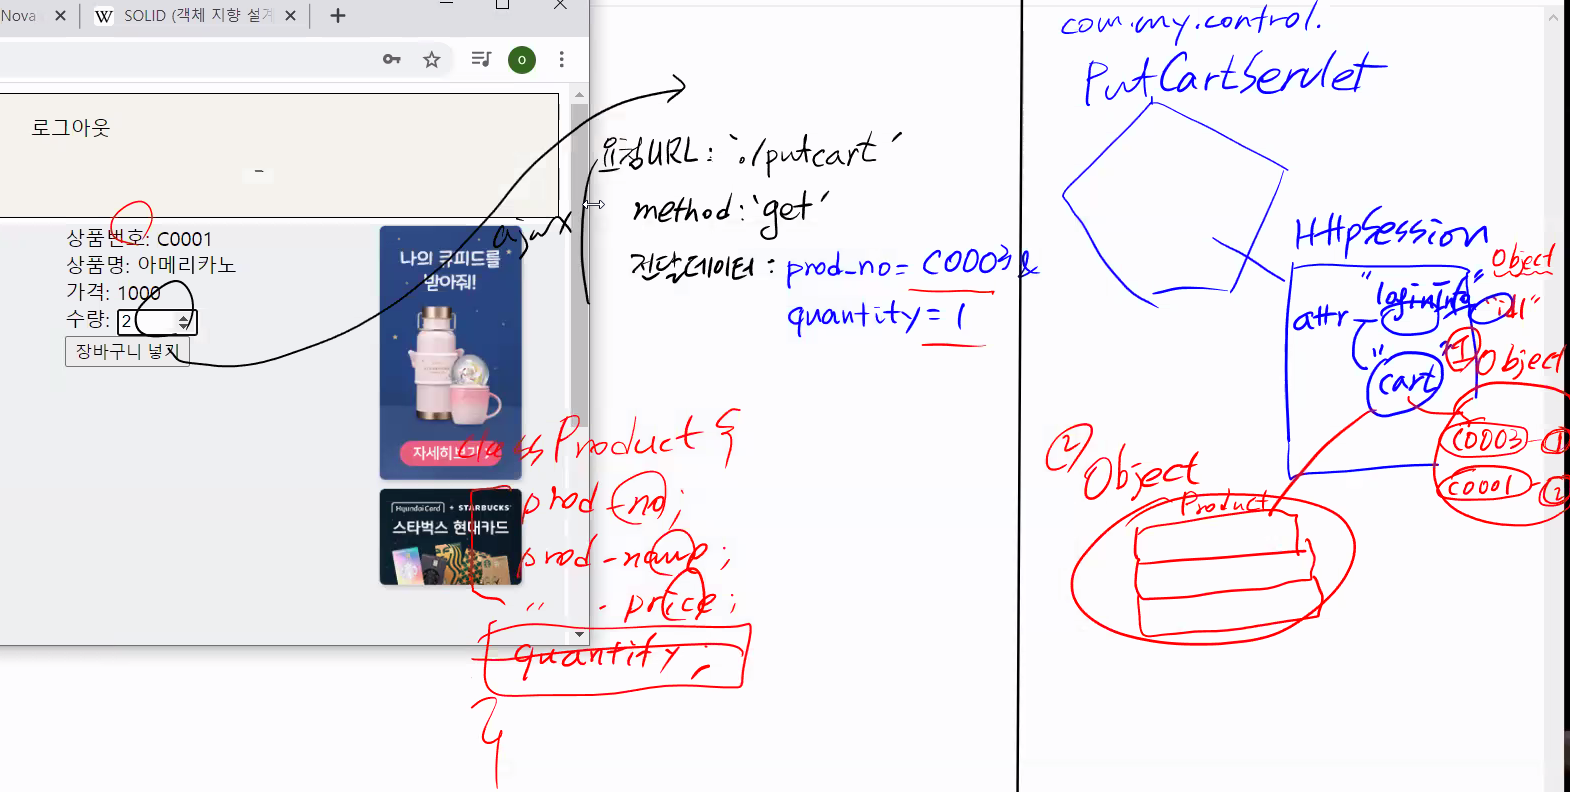 Nova
SOLID (객체 지향 설계
o
로그아웃
상품번호: C0001
상품명: 아메리카노
가격: 1000
수량: 2
장바구니 넣기
나의 큐피드를
받아줘!
자세히보기
HyundaiCard + STARBUCKS
스타벅스 현대카드
ajax
요청URL: './putcart'
method: 'get'
전달데이터: prod_no= C0003 &
quantity = 1
class Product {
prod-no;
prod-name;
" - price;
quantity;
}
com.my.control.
PutCartServlet
HttpSession
Object
attr
"loginInfo"
"cart"
① Object
C0003 - ①
C0001 - ②
② Object
Product